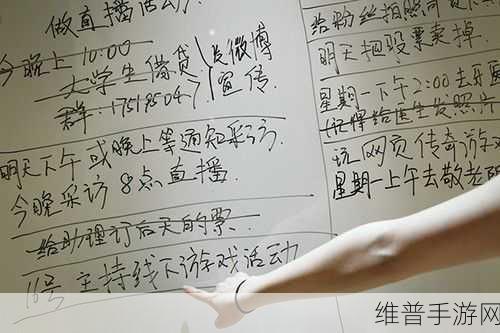 做直播活动
今晚上 10:00
大学生借贷 发微博
群:17519504 宣传.
明天下午或晚上等通知采访.
今晚采访 8点直播.
给助理订后天的票.
16号 主持线下游戏活动
给粉丝拍照
明天把股票卖掉.
星期一下午2:00去牙医
(记得给医生发照片
玩网页传奇游戏
星期一上午去敬老院
维普手游网